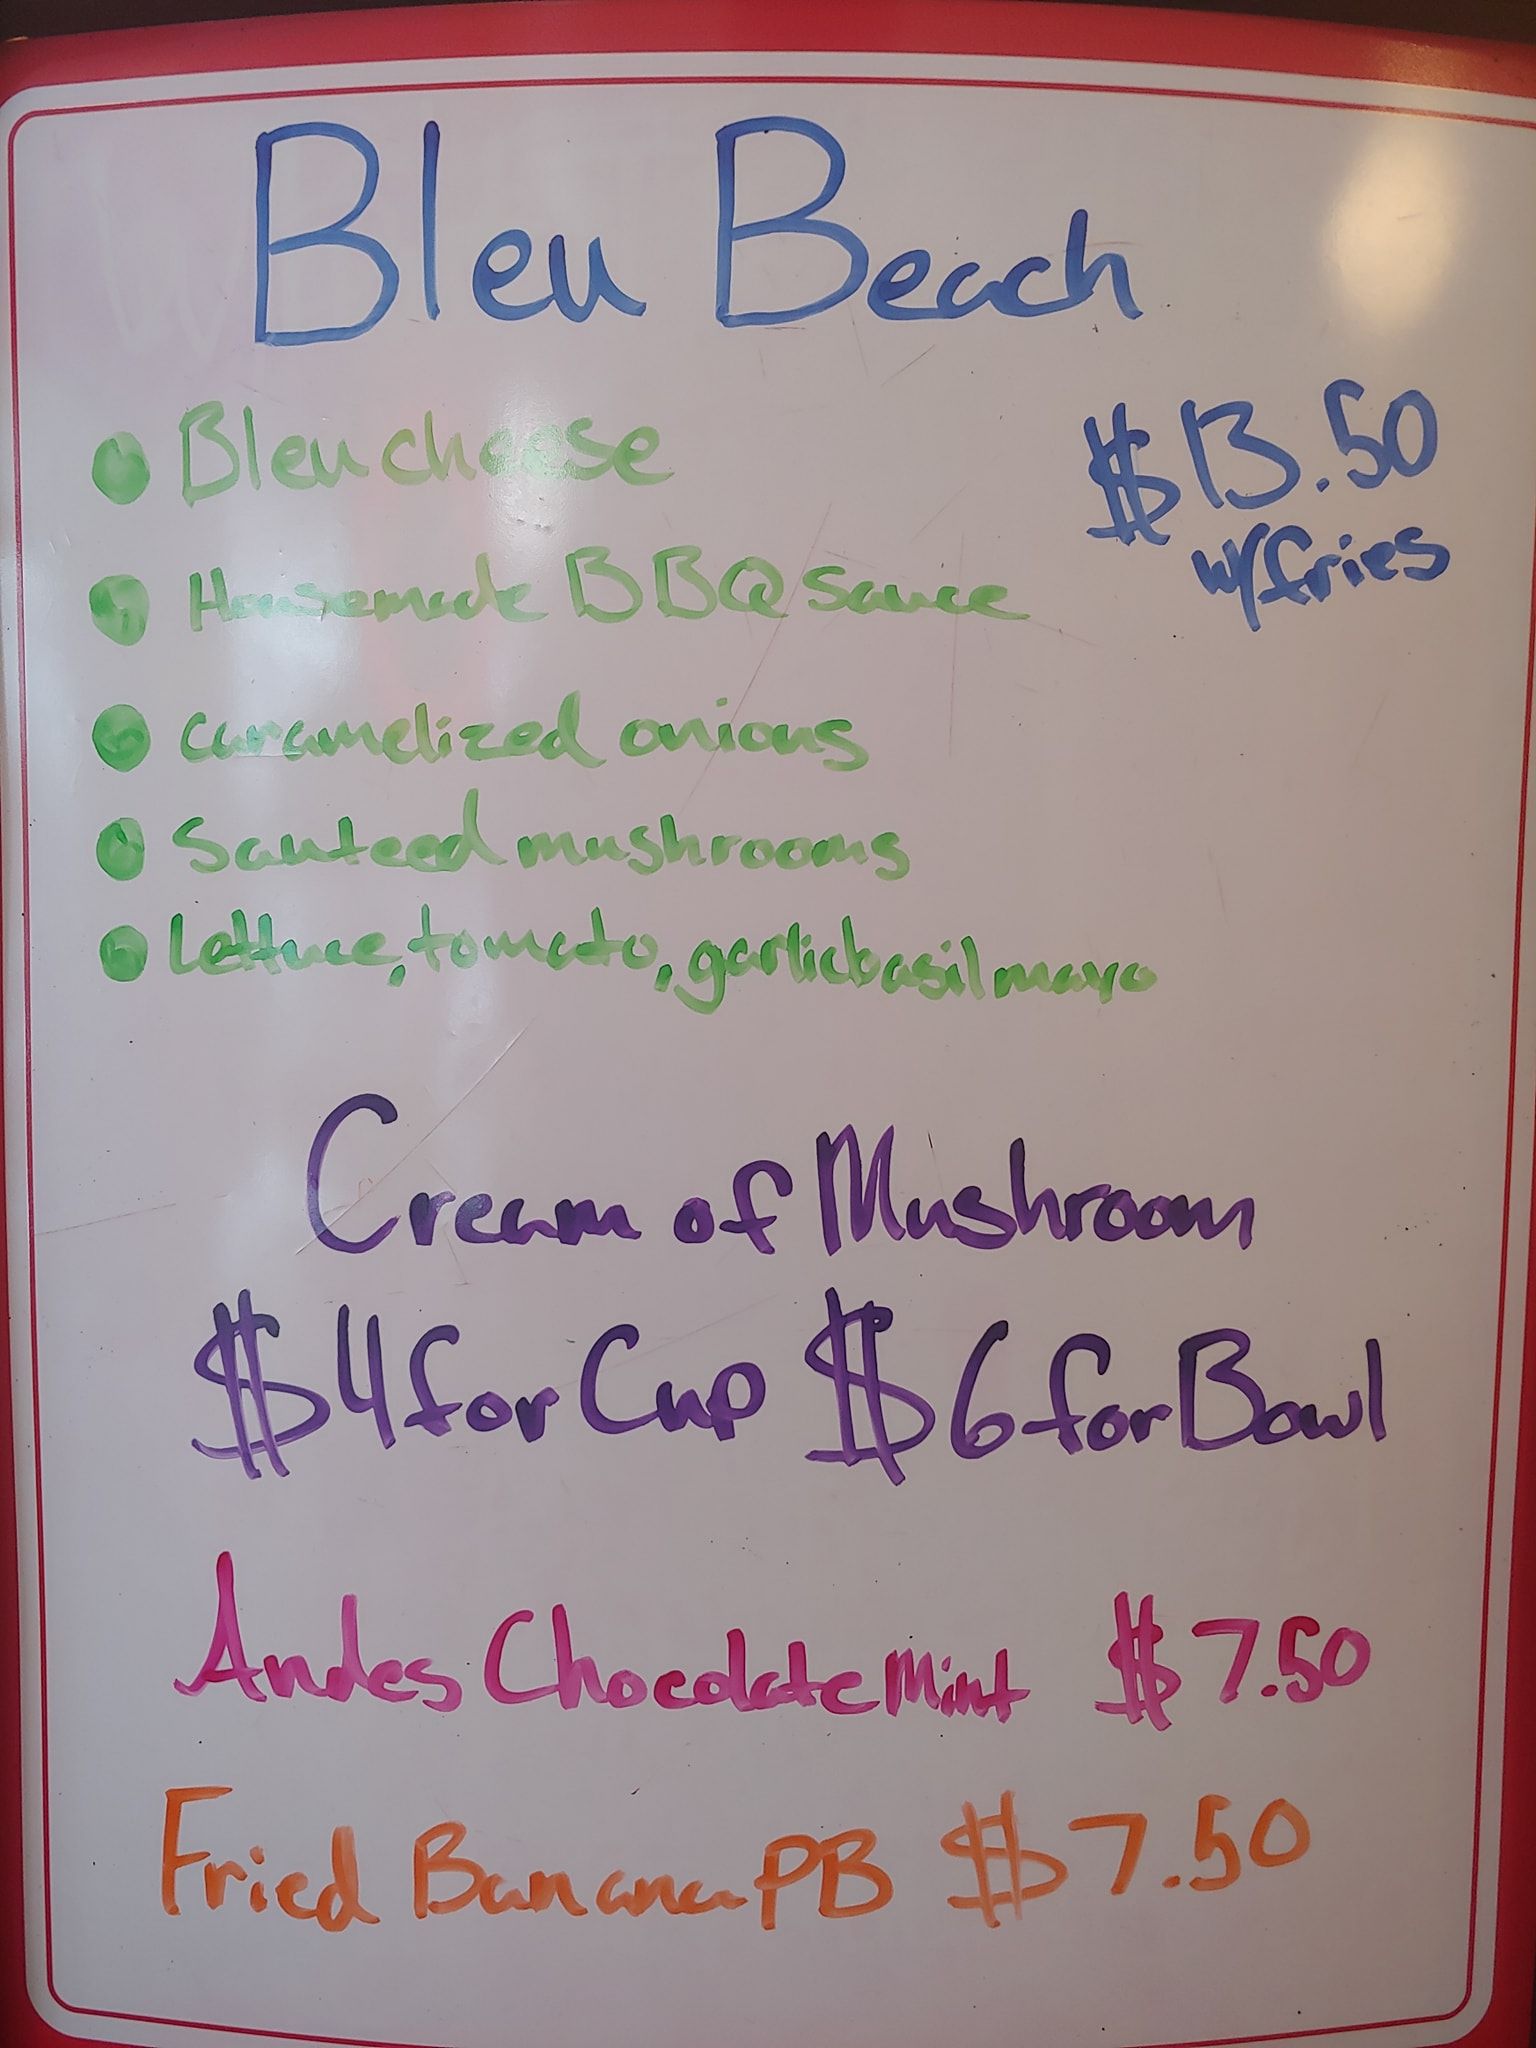 Bleu Beach
• Bleu cheese
$13.50
w/fries
• Housemade BBQ sauce
• caramelized onions
• Sauteed mushrooms
• Lettuce, tomato, garlic basil mayo
Cream of Mushroom
$4 for Cup $6 for Bowl
Andes Chocolate Mint $7.50
Fried Banana PB $7.50